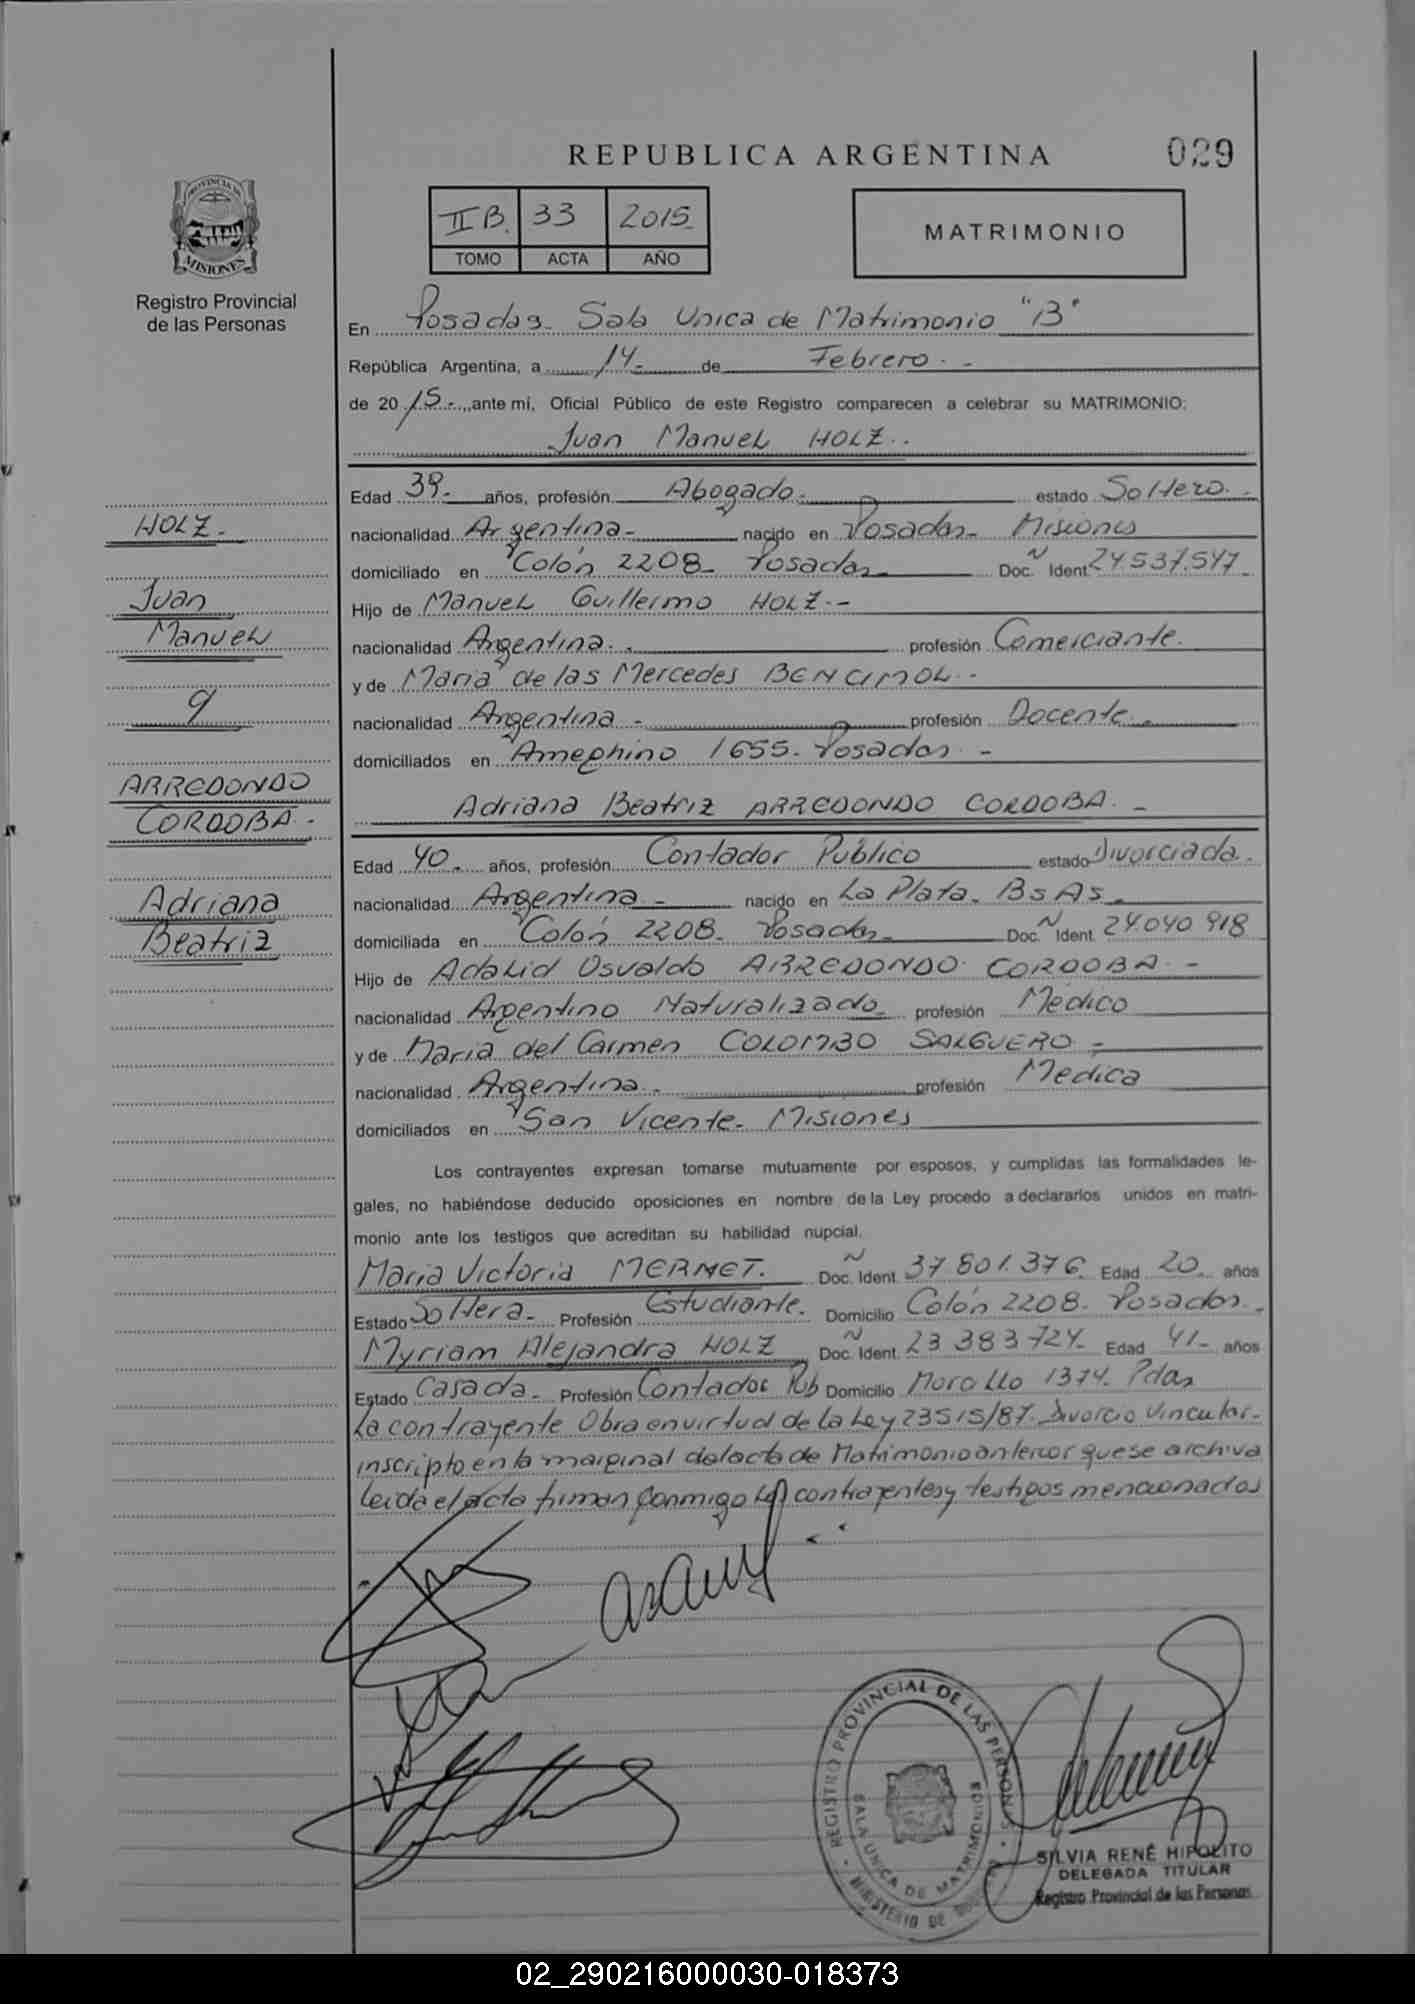 REPUBLICA ARGENTINA
029
PROVINCIA DE
MISIONES
Registro Provincial
de las Personas
II B. 33 2015
TOMO ACTA AÑO
MATRIMONIO
En Posadas. Sala Unica de Matrimonio "B"
República Argentina, a 14- de Febrero.-
de 2015-, ante mí, Oficial Público de este Registro comparecen a celebrar su MATRIMONIO:
Juan Manuel HOLZ..
Edad 39- años, profesión Abogado. estado Soltero.-
HOLZ.-
nacionalidad Argentina- nacido en Posadas- Misiones
domiciliado en Colón 2208- Posadas Doc. Ident. 24.537.547
Juan
Hijo de Manuel Guillermo HOLZ.-
Manuel
nacionalidad Argentina.. profesión Comerciante.
y de Maria de las Mercedes BENCIMOL.-
nacionalidad Argentina- profesión Docente.
domiciliados en Ameghino 1655. Posadas.-
ARREDONDO
Adriana Beatriz ARREDONDO CORDOBA.-
CORDOBA.-
Edad 40. años, profesión Contador Público estado Divorciada.
Adriana
nacionalidad Argentina.- nacido en La Plata. Bs As.
Beatriz
domiciliada en Colón 2208. Posadas Doc. Ident. 24.040.918
Hijo de Adalid Osvaldo ARREDONDO CORDOBA.-
nacionalidad Argentino Naturalizado profesión Médico
y de Maria del Carmen COLOMBO SALGUERO-
nacionalidad Argentina.- profesión Medica
domiciliados en San Vicente. Misiones
Los contrayentes expresan tomarse mutuamente por esposos, y cumplidas las formalidades le-
gales, no habiéndose deducido oposiciones en nombre de la Ley procedo a declararlos unidos en matri-
monio ante los testigos que acreditan su habilidad nupcial.
Maria Victoria MERNET. Doc. Ident. 37.801.376 Edad 20 años
Estado Soltera- Profesión Estudiante. Domicilio Colón 2208. Posadas.
Myriam Alejandra HOLZ Doc. Ident. 23 383 724- Edad 41- años
Estado Casada- Profesión Contador Pub Domicilio 1374. Pdas
La contrayente Obra en virtud de la Ley 23515/87. Divorcio Vincular-
inscripto en la marginal del acta de Matrimonio anterior que se archiva
leida el acta firman conmigo los contrayentes y testigos mencionados
REGISTRO PROVINCIAL DE LAS PERSONAS
SALA UNICA DE MATRIMONIOS
MINISTERIO DE
SILVIA RENÉ HIPOLITO
DELEGADA TITULAR
Registro Provincial de las Personas
02_290216000030-018373